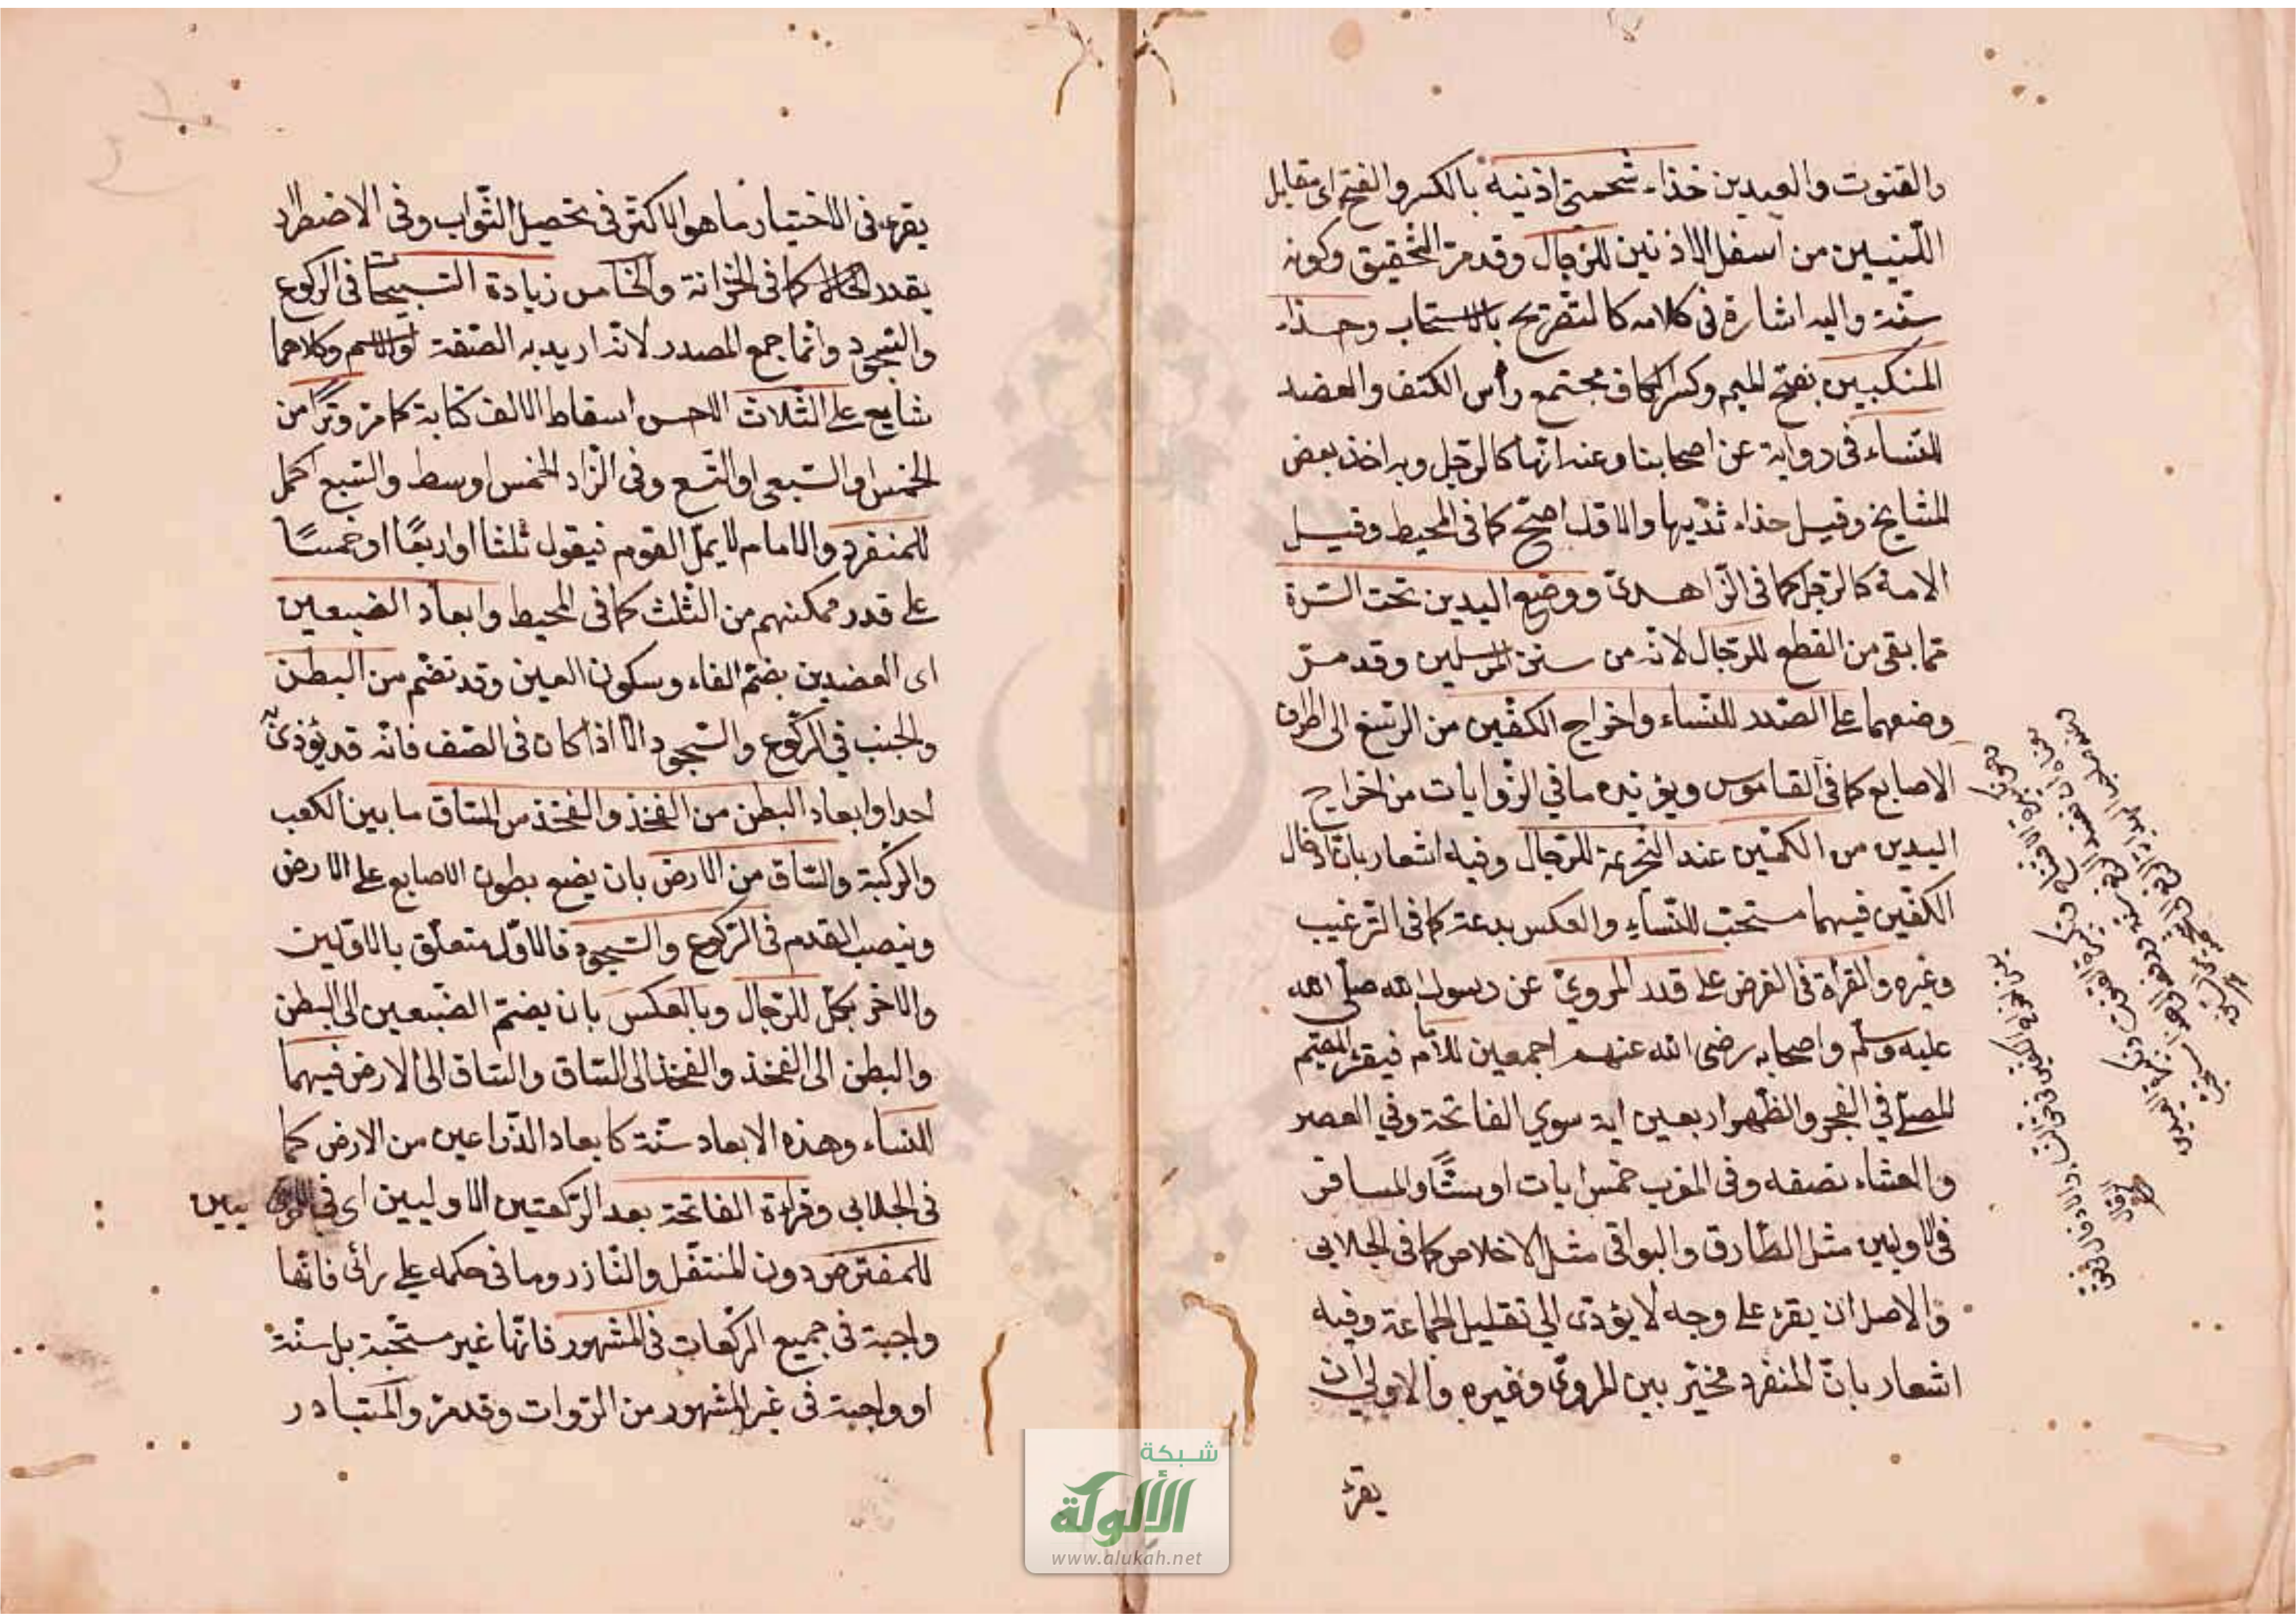 والقنوت والعيدين حذاء شحمتي اذنيه بالكسر والفتح اى مقابل
اللينتين من اسفل الاذنين للرجال وقد مرّ التحقيق وكونه
سنّة واليه اشارة فى كلامه كالتفريج بالاستحباب وحذاء
المنكبين بفتح الميم وكسر الكاف مجتمع رأس الكتف والعضد
للنّساء فى رواية عن اصحابنا وعنه انّها كالرّجل وبه اخذ بعض
المشايخ وقيل حذاء ثدييها والاوّل اصحّ كما فى المحيط وقيل
الامة كالرّجل كما فى الزّاهدىّ ووضع اليدين تحت السّرة
ممّا بقى من القطع للرّجال لانّه من سنن المرسلين وقد مرّ
وضعهما على الصّدر للنّساء واخراج الكفّين من الرسغ الى اطراف
الاصابع كما فى القاموس ويؤيّده ما في الرّوايات من اخراج
اليدين من الكمّين عند التحريمة للرّجال وفيه اشعار بانّ ادخال
الكفّين فيهما مستحبّ للنّساءِ والعكس بدعة كما فى الترغيب
وغيره والقرأة فى الفرض على قدر المرويّ عن رسول الله صلّى الله
عليه وسلّم واصحابه رضى الله عنهم اجمعين للامام فيقرء المقيم
المصلّى في الفجر والظّهر اربعين اية سوي الفاتحة وفي العصر
والعشاء نصفه وفى المغرب خمس ايات او ستًّا والمسافر
فى الاوليين مثل الطّارق والبواقى مثل الاخلاص كما فى الجلابى
والاصل ان يقرء على وجه لا يؤدّى الي تقليل الجماعة وفيه
اشعار بانّ المنفرد مخيّر بين المروىّ وغيره والاولى ان
يقرء
يقرء فى الاختيار ما هو الاكثر فى تحصيل الثّواب وفى الاضطرار
بقدر الحال كما فى الخزانة والخامس زيادة التّسبيحات فى الركوع
والسّجود وانّما جمع المصدر لانّه اريد به الصّفة او الاسم وكلاهما
شايع على الثّلاث الاحسن اسقاط الالف كتابة كما مرّ وترًا من
الخمس او السّبع او التّسع وفى الزّاد الخمس اوسط والسّبع اكمل
للمنفرد والامام لا يملّ القوم فيقول ثلثًا او اربعًا او خمسًا
على قدر تمكنهم من الثّلث كما فى المحيط وابعاد الضبعين
اى العضدين بضمّ الفاء وسكون العين وقد تضّم من البطن
والجنب في الرّكوع والسّجود الّا اذا كان فى الصّف فانّه قد يؤذىّ
احدا وابعاد البطن من الفخذ والفخذ من السّاق ما بين الكعب
والرّكبة والسّاق من الارض بان يضع بطون الاصابع على الارض
وينصب القدم فى الرّكوع والسّجود فالاوّل متعلّق بالاوّلين
والاخر بكلّ للرّجال وبالعكس بان يضمّ الضّبعين الى البطن
والبطن الى الفخذ والفخذ الى السّاق والسّاق الى الارض فيهما
للنّساء وهذه الابعاد سنّة كابعاد الذّراعين من الارض كما
فى الجلابى وقراءة الفاتحة بعد الرّكعتين الاوليين اى فى الاخريين
للمفترض دون المتنفّل والنّاذر وما فى حكمه على رائى فانّها
واجبة فى جميع الركعات فى المشهور فانّها غير مستحّبة بل سنّة
او واجبة فى غير المشهور من الرّوات وقد مرّ والمتبادر
شبكة
الألوكة
www.alukah.net